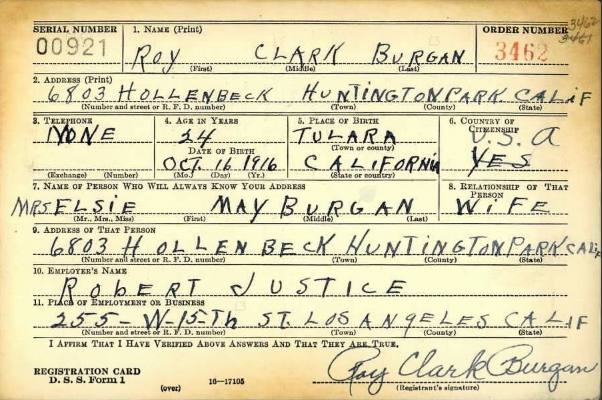 SERIAL NUMBER 1. NAME (Print) ORDER NUMBER 3462
00921 ROY CLARK BURGAN 3462
(First) (Middle) (Last)
2. ADDRESS (Print)
6803 HOLLENBECK HUNTINGTON PARK CALIF
(Number and street or R. F. D. number) (Town) (County) (State)
3. TELEPHONE 4. AGE IN YEARS 5. PLACE OF BIRTH 6. COUNTRY OF CITIZENSHIP
NONE 24 TULARA U.S.A
DATE OF BIRTH (Town or county)
OCT. 16 1916 CALIFORNIA YES
(Exchange) (Number) (Mo.) (Day) (Yr.) (State or country)
7. NAME OF PERSON WHO WILL ALWAYS KNOW YOUR ADDRESS 8. RELATIONSHIP OF THAT PERSON
MRS ELSIE MAY BURGAN WIFE
(Mr., Mrs., Miss) (First) (Middle) (Last)
9. ADDRESS OF THAT PERSON
6803 HOLLENBECK HUNTINGTON PARK CALIF
(Number and street or R. F. D. number) (Town) (County) (State)
10. EMPLOYER'S NAME
ROBERT JUSTICE
11. PLACE OF EMPLOYMENT OR BUSINESS
255-W-15Th ST. LOS ANGELES CALIF
(Number and street or R. F. D. number) (Town) (County) (State)
I AFFIRM THAT I HAVE VERIFIED ABOVE ANSWERS AND THAT THEY ARE TRUE.
REGISTRATION CARD Roy Clark Burgan
D. S. S. Form 1 (over) 16—17105 (Registrant's signature)